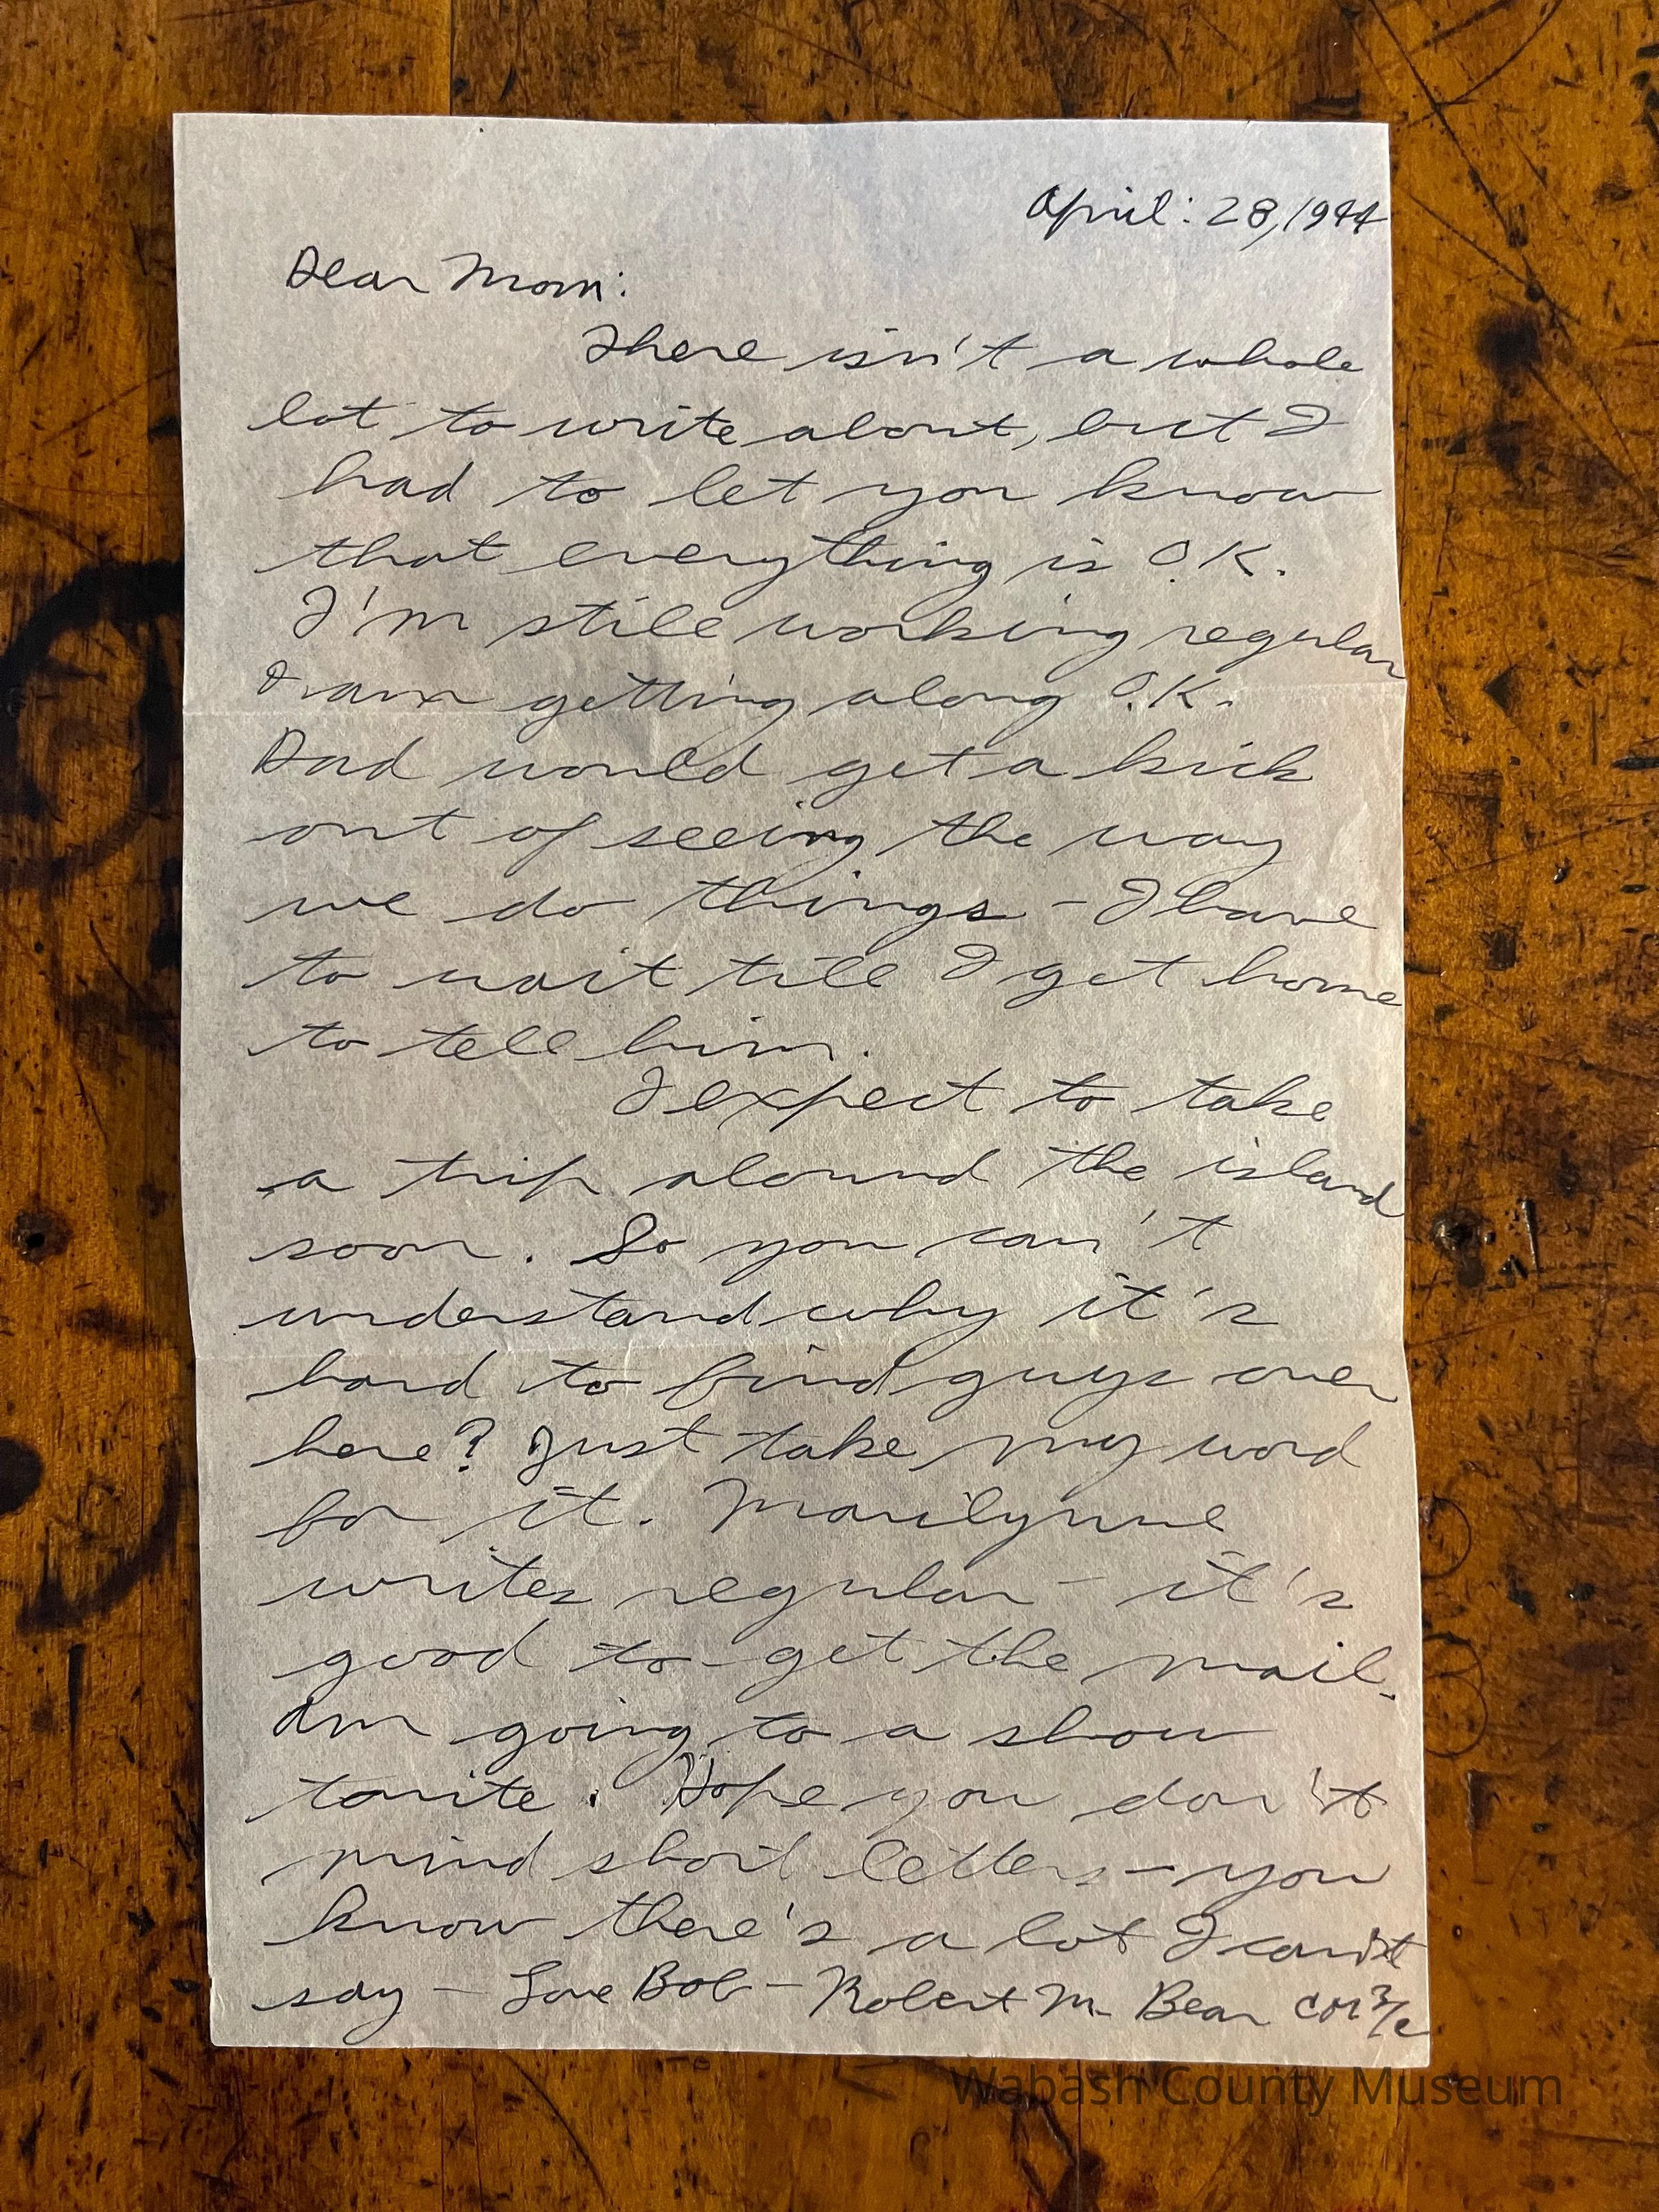 April: 28, 1944
Dear Mom:
There isn't a whole
lot to write about, but I
had to let you know
that everything is O.K.
I'm still working regular
I am getting along O.K.
Dad would get a kick
out of seeing the way
we do things - I have
to wait till I get home
to tell him.
I expect to take
a trip around the island
soon. So you can't
understand why it's
hard to find guys over
here? Just take my word
for it. Marilynne
writes regular - it's
good to get the mail.
Am going to a show
tonite. Hope you don't
mind short letters - you
know there's a lot I can't
say - Love Bob - Robert M. Bear CM 3/c
Wabash County Museum